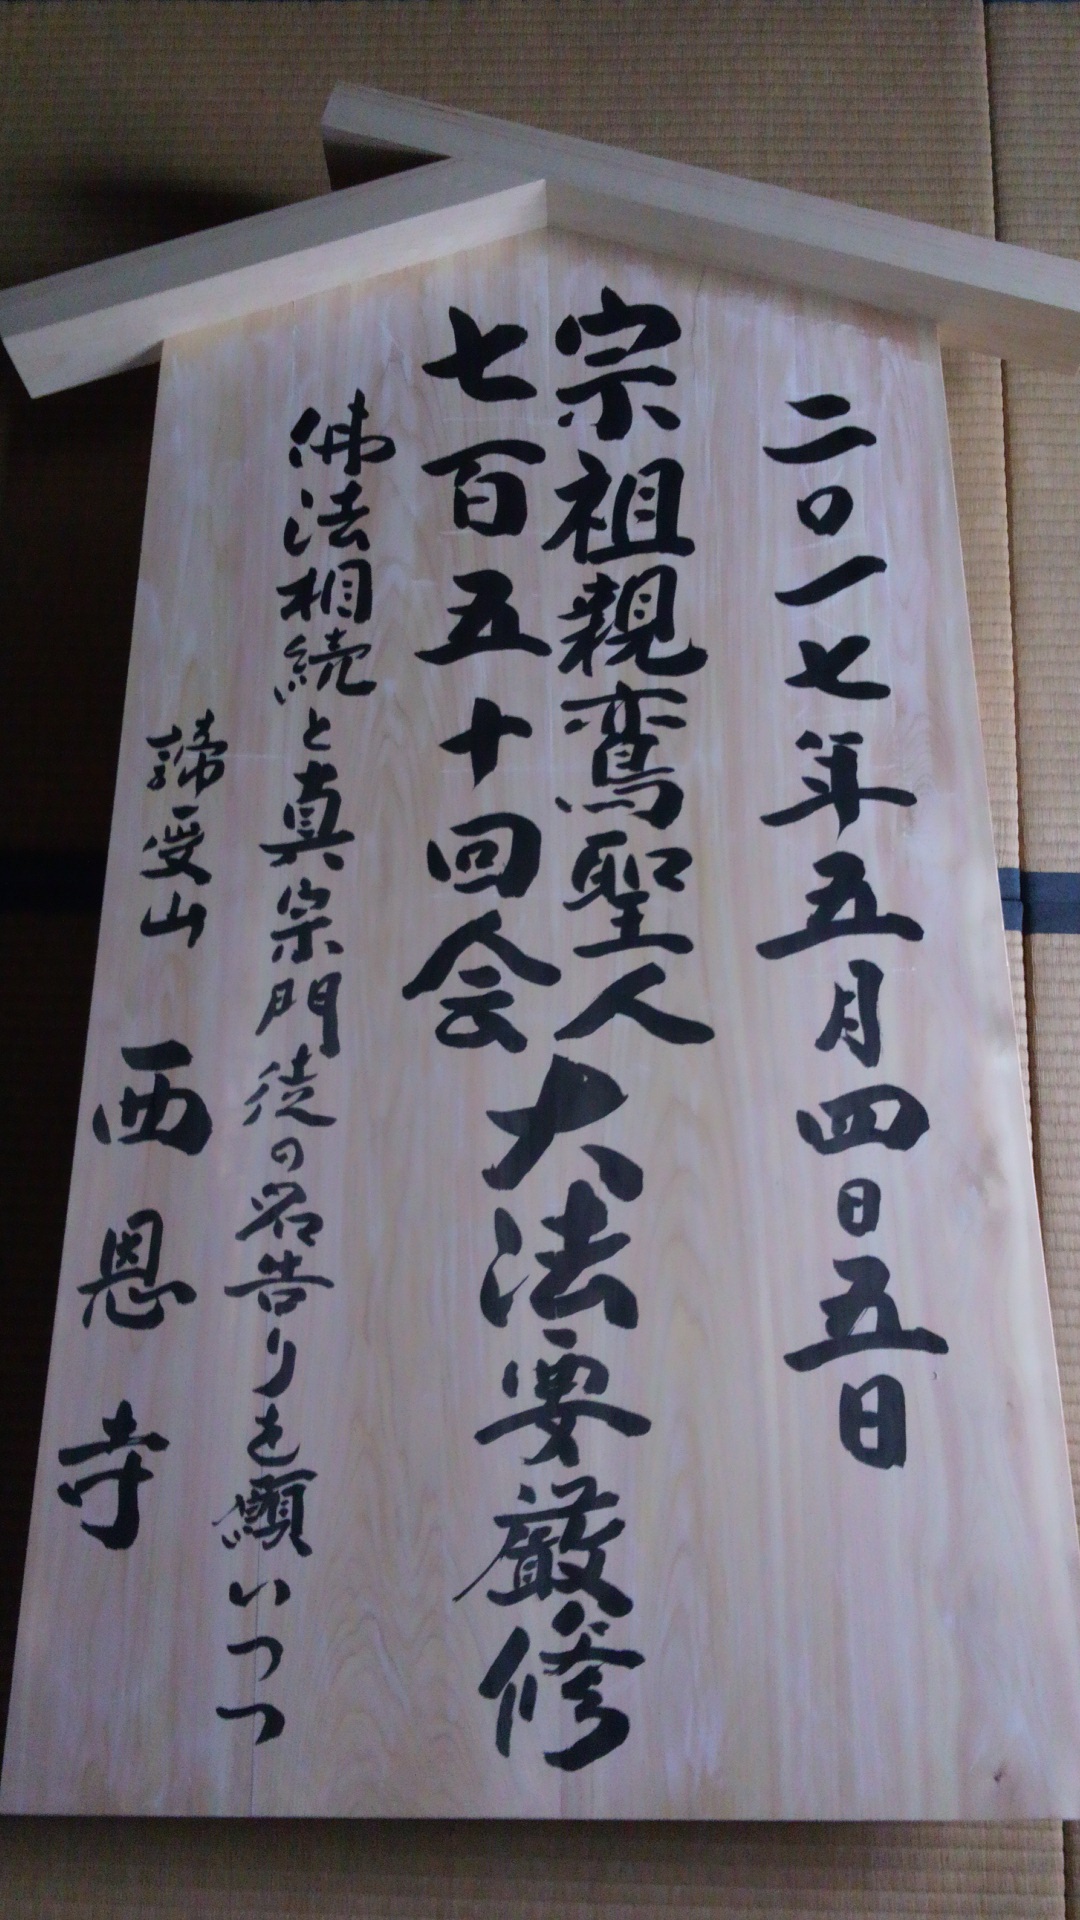 二〇一七年五月四日五日
宗祖親鸞聖人
七百五十回会
大法要厳修
佛法相続と真宗門徒の名告りを願いつつ
諦受山 西恩寺